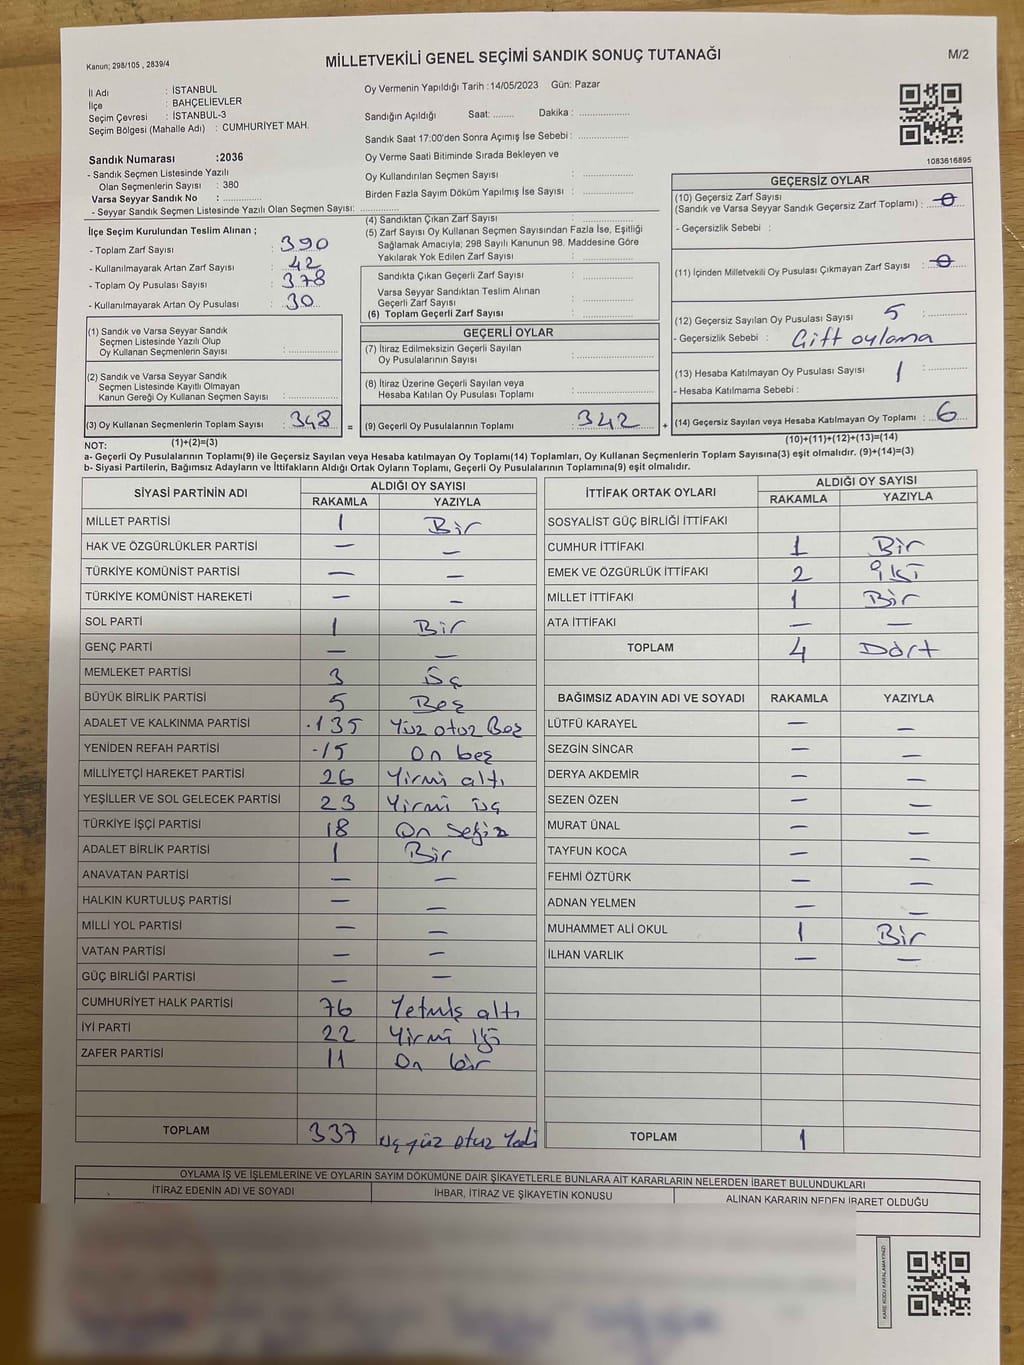 Kanun; 298/105 , 2839/4
MİLLETVEKİLİ GENEL SEÇİMİ SANDIK SONUÇ TUTANAĞI
M/2
İl Adı : İSTANBUL
İlçe : BAHÇELİEVLER
Seçim Çevresi : İSTANBUL-3
Seçim Bölgesi (Mahalle Adı) : CUMHURİYET MAH.
Sandık Numarası :2036
- Sandık Seçmen Listesinde Yazılı
Olan Seçmenlerin Sayısı : 380
Varsa Seyyar Sandık No : ..............
- Seyyar Sandık Seçmen Listesinde Yazılı Olan Seçmen Sayısı: ..............
İlçe Seçim Kurulundan Teslim Alınan ;
- Toplam Zarf Sayısı : 390
- Kullanılmayarak Artan Zarf Sayısı : 42
- Toplam Oy Pusulası Sayısı : 378
- Kullanılmayarak Artan Oy Pusulası : 30
(1) Sandık ve Varsa Seyyar Sandık
Seçmen Listesinde Yazılı Olup
Oy Kullanan Seçmenlerin Sayısı : ..............
(2) Sandık ve Varsa Seyyar Sandık
Seçmen Listesinde Kayıtlı Olmayan
Kanun Gereği Oy Kullanan Seçmen Sayısı : ..............
(3) Oy Kullanan Seçmenlerin Toplam Sayısı : 348 =
Oy Vermenin Yapıldığı Tarih :14/05/2023 Gün: Pazar
Sandığın Açıldığı Saat: ........ Dakika : ..............
Sandık Saat 17:00'den Sonra Açımış İse Sebebi : ..............
Oy Verme Saati Bitiminde Sırada Bekleyen ve
Oy Kullandırılan Seçmen Sayısı : ..............
Birden Fazla Sayım Döküm Yapılmış İse Sayısı : ..............
(4) Sandıktan Çıkan Zarf Sayısı : ..............
(5) Zarf Sayısı Oy Kullanan Seçmen Sayısından Fazla İse, Eşitliği
Sağlamak Amacıyla; 298 Sayılı Kanunun 98. Maddesine Göre
Yakılarak Yok Edilen Zarf Sayısı : ..............
Sandıkta Çıkan Geçerli Zarf Sayısı : ..............
Varsa Seyyar Sandıktan Teslim Alınan
Geçerli Zarf Sayısı : ..............
(6) Toplam Geçerli Zarf Sayısı : ..............
GEÇERLİ OYLAR
(7) İtiraz Edilmeksizin Geçerli Sayılan
Oy Pusulalarının Sayısı : ..............
(8) İtiraz Üzerine Geçerli Sayılan veya
Hesaba Katılan Oy Pusulası Toplamı : ..............
(9) Geçerli Oy Pusulalarının Toplamı : 342 +
1083616895
GEÇERSİZ OYLAR
(10) Geçersiz Zarf Sayısı
(Sandık ve Varsa Seyyar Sandık Geçersiz Zarf Toplamı) : 0
- Geçersizlik Sebebi :
(11) İçinden Milletvekili Oy Pusulası Çıkmayan Zarf Sayısı : 0
(12) Geçersiz Sayılan Oy Pusulası Sayısı 5 : ..............
- Geçersizlik Sebebi : Çift oylama
(13) Hesaba Katılmayan Oy Pusulası Sayısı 1 : ..............
- Hesaba Katılmama Sebebi :
(14) Geçersiz Sayılan veya Hesaba Katılmayan Oy Toplamı : 6
(10)+(11)+(12)+(13)=(14)
NOT: (1)+(2)=(3)
a- Geçerli Oy Pusulalarının Toplamı(9) ile Geçersiz Sayılan veya Hesaba katılmayan Oy Toplamı(14) Toplamları, Oy Kullanan Seçmenlerin Toplam Sayısına(3) eşit olmalıdır. (9)+(14)=(3)
b- Siyasi Partilerin, Bağımsız Adayların ve İttifakların Aldığı Ortak Oyların Toplamı, Geçerli Oy Pusulalarının Toplamına(9) eşit olmalıdır.
SİYASİ PARTİNİN ADI ALDIĞI OY SAYISI
RAKAMLA YAZIYLA
MİLLET PARTİSİ 1 Bir
HAK VE ÖZGÜRLÜKLER PARTİSİ — —
TÜRKİYE KOMÜNİST PARTİSİ — —
TÜRKİYE KOMÜNİST HAREKETİ — —
SOL PARTİ 1 Bir
GENÇ PARTİ — —
MEMLEKET PARTİSİ 3 Üç
BÜYÜK BİRLİK PARTİSİ 5 Beş
ADALET VE KALKINMA PARTİSİ 135 Yüz otuz Beş
YENİDEN REFAH PARTİSİ 15 On beş
MİLLİYETÇİ HAREKET PARTİSİ 26 Yirmi altı
YEŞİLLER VE SOL GELECEK PARTİSİ 23 Yirmi üç
TÜRKİYE İŞÇİ PARTİSİ 18 On sekiz
ADALET BİRLİK PARTİSİ 1 Bir
ANAVATAN PARTİSİ — —
HALKIN KURTULUŞ PARTİSİ — —
MİLLİ YOL PARTİSİ — —
VATAN PARTİSİ — —
GÜÇ BİRLİĞİ PARTİSİ — —
CUMHURİYET HALK PARTİSİ 76 Yetmiş altı
İYİ PARTİ 22 Yirmi iki
ZAFER PARTİSİ 11 On bir
TOPLAM 337 üç yüz otuz Yedi
İTTİFAK ORTAK OYLARI ALDIĞI OY SAYISI
RAKAMLA YAZIYLA
SOSYALİST GÜÇ BİRLİĞİ İTTİFAKI
CUMHUR İTTİFAKI 1 Bir
EMEK VE ÖZGÜRLÜK İTTİFAKI 2 iki
MİLLET İTTİFAKI 1 Bir
ATA İTTİFAKI — —
TOPLAM 4 Dört
BAĞIMSIZ ADAYIN ADI VE SOYADI RAKAMLA YAZIYLA
LÜTFÜ KARAYEL — —
SEZGİN SİNCAR — —
DERYA AKDEMİR — —
SEZEN ÖZEN — —
MURAT ÜNAL — —
TAYFUN KOCA — —
FEHMİ ÖZTÜRK — —
ADNAN YELMEN — —
MUHAMMET ALİ OKUL 1 Bir
İLHAN VARLIK — —
TOPLAM 1
OYLAMA İŞ VE İŞLEMLERİNE VE OYLARIN SAYIM DÖKÜMÜNE DAİR ŞİKAYETLERLE BUNLARA AİT KARARLARIN NELERDEN İBARET BULUNDUKLARI
İTİRAZ EDENİN ADI VE SOYADI İHBAR, İTİRAZ VE ŞİKAYETİN KONUSU ALINAN KARARIN NEDEN İBARET OLDUĞU
KARE KODU KARALAMAYINIZ!